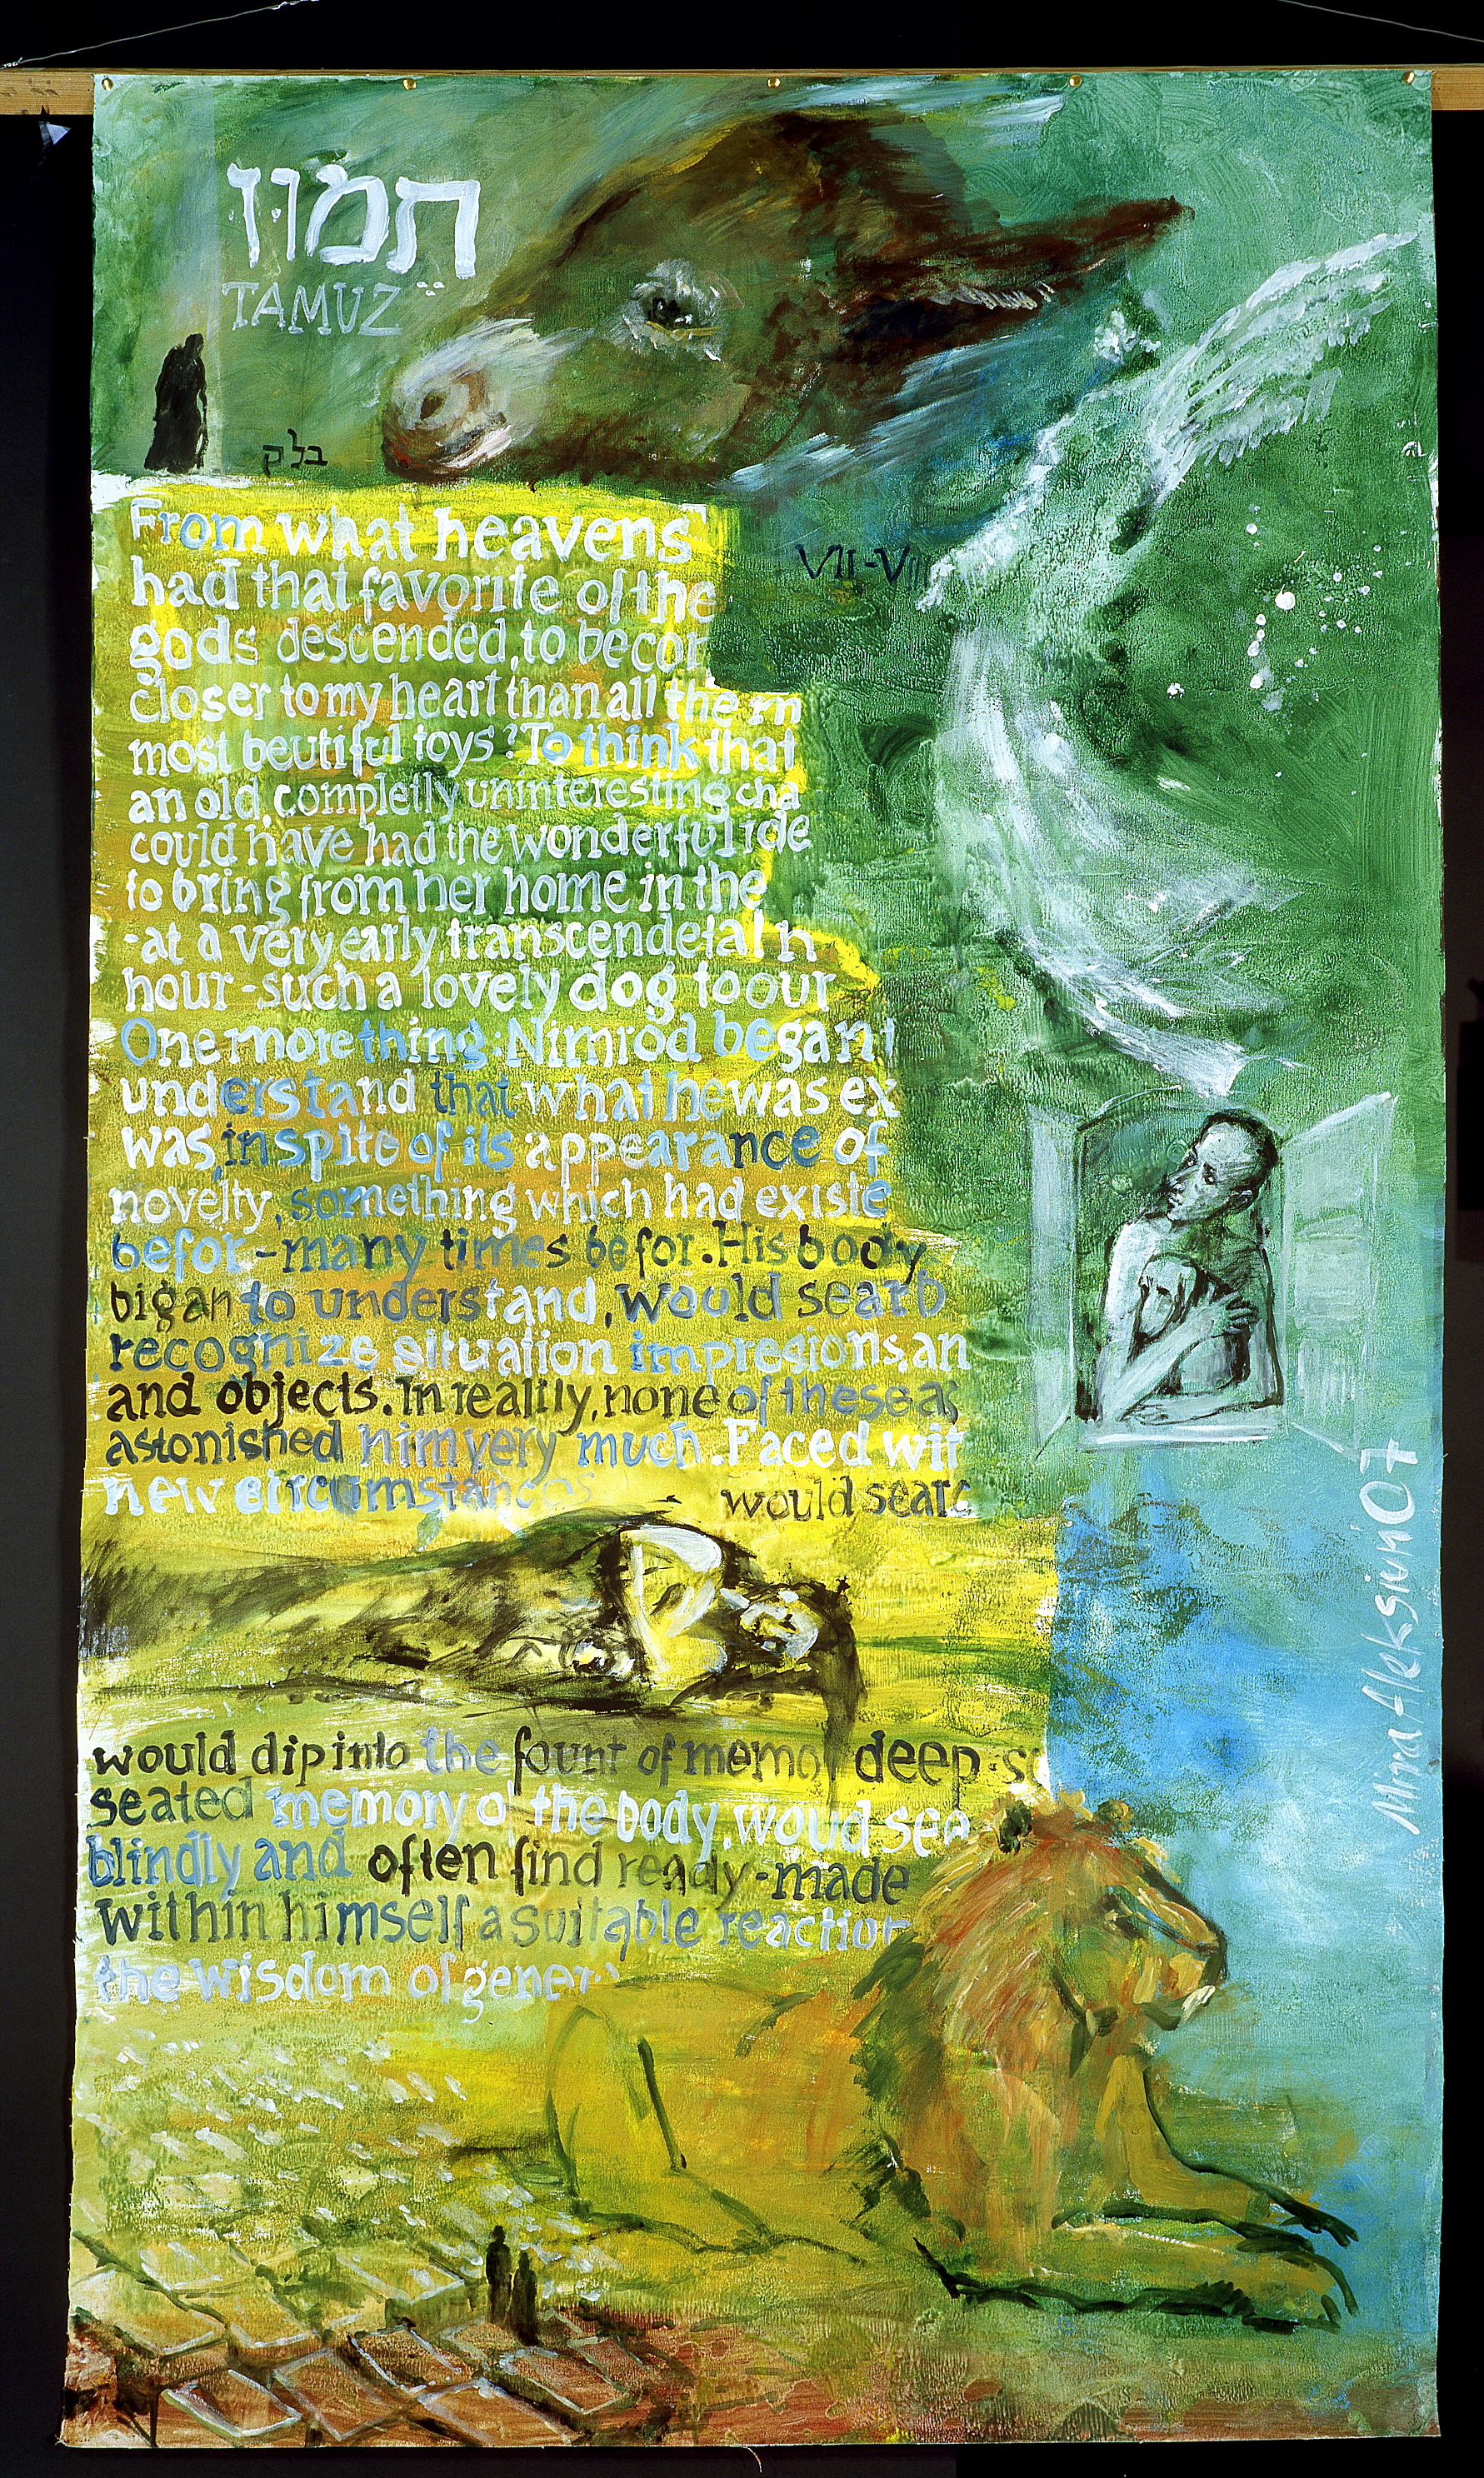 תמוז
TAMUZ
בלק
From what heavens
had that favorite of the
gods descended, to becor
closer to my heart than all the m
most beutiful toys? To think that
an old, completly uninteresting cha
could have had the wonderful ide
to bring from her home in the
-at a very early, transcendetal h
hour - such a lovely dog to our
One more thing: Nimrod began t
understand that what he was ex
was, in spite of its appearance of
novelty, something which had existe
befor - many times befor. His body
bigan to understand, would searb
recognize situation impresions, an
and objects. In reality, none of these as
astonished him very much. Faced wit
new circumstances would searc
would dip into the fount of memo deep-se
seated memory of the body, woud sea
blindly and often find ready-made
within himself a suitable reaction
the wisdom of gener
VII-VIII
Mira Aleksiun 07